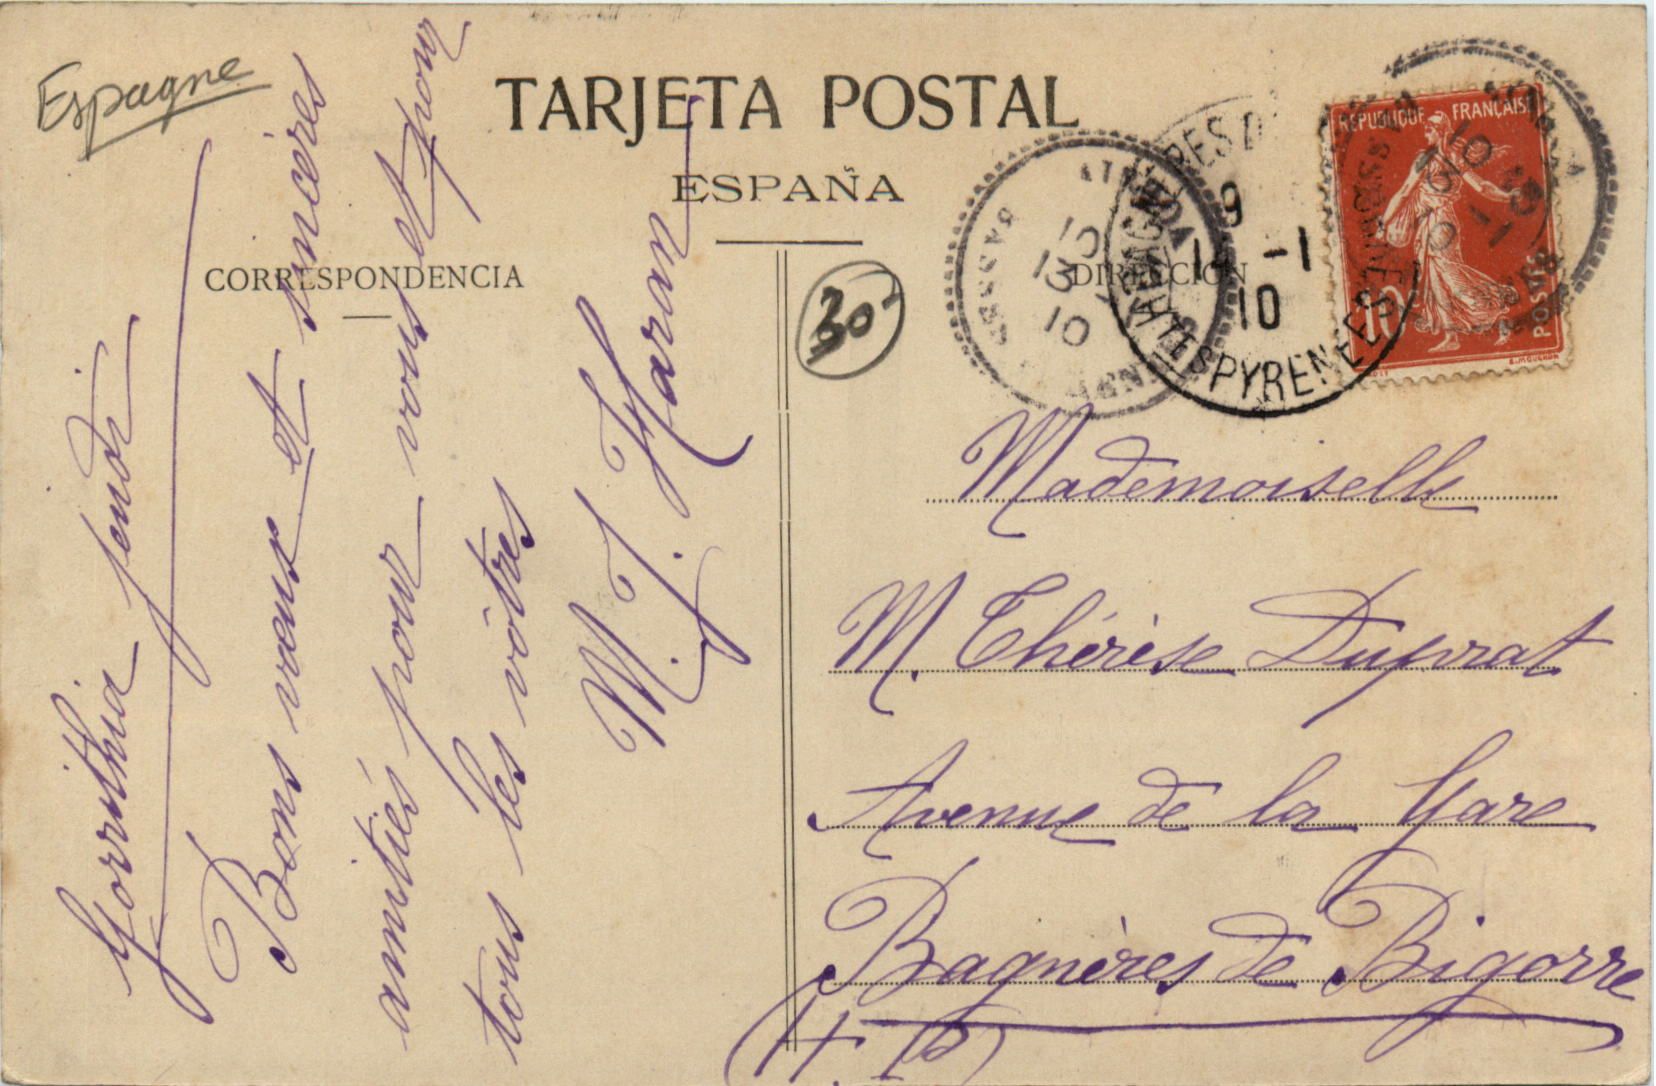 Espagne
TARJETA POSTAL
ESPAÑA
CORRESPONDENCIA
DIRECCIÓN
30
Gorrithia fendi
Bons vœux et sincères
amitiés pour vous et pour
tous les vôtres
M. J. Haran
REPUBLIQUE FRANÇAISE
10
POSTES
10
13
10
9
1 -1
10
HTES PYRENEES
Mademoiselle
M. Thérèse Duprat
Avenue de la Gare
Bagnères de Bigorre
(H. P)